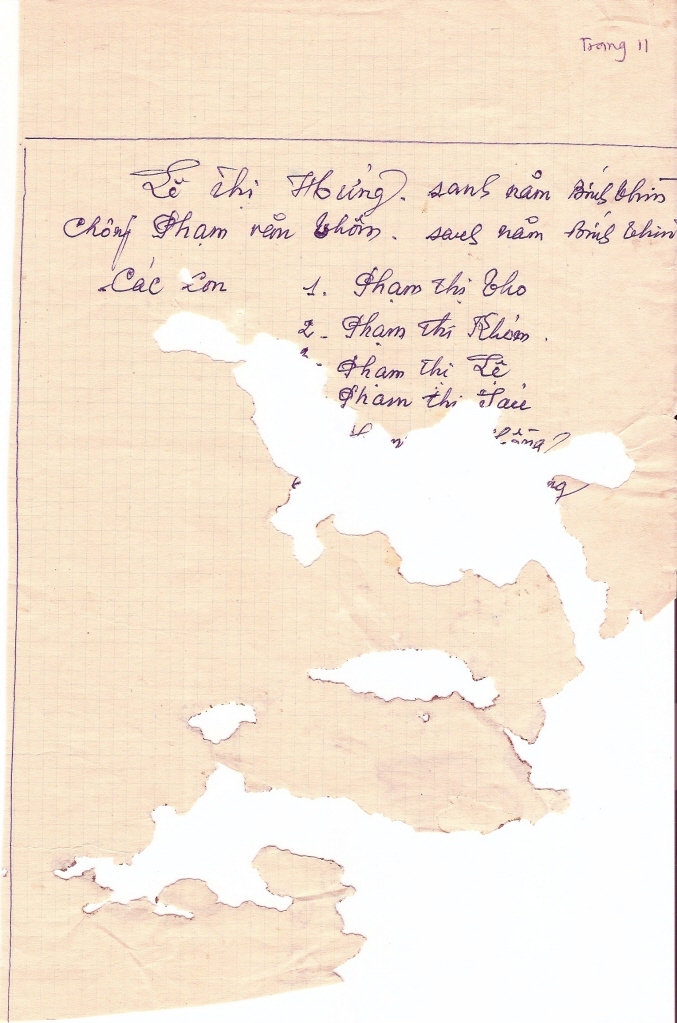 Trang 11
Lê Thị Hưởng. sanh năm Bính Thìn
Chồng Phạm văn Thôm. sanh năm Bính Thìn
Các Con 1. Phạm thị Tho
2. Phạm thị Khóm.
Phạm thị Lệ
Phạm thị Sáu